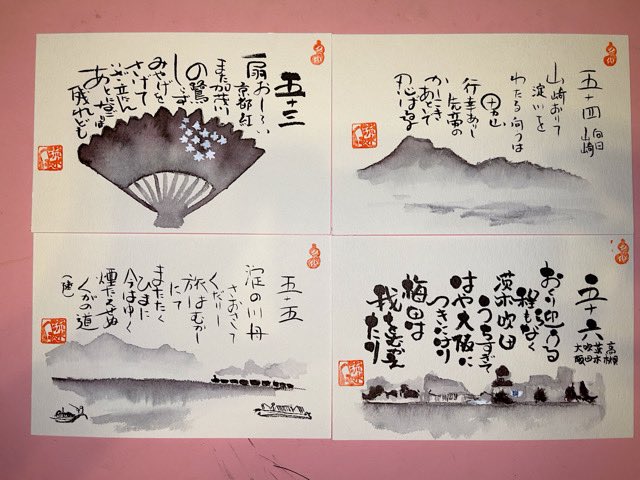 五十三
扇おしろい
京都紅
また加茂川
の鷺
しらず
みやげを
さげて
いざ立たん
あとに名残は
残れども
五十四 向日 山崎
山崎おりて
淀川を
わたる向うは
男山
行幸ありし
先帝の
かしこきあとぞ
忍ばるる
五十五
淀の川舟
さおさして
くだりし
旅はむかし
にて
またたく
ひまに
今はゆく
煙たえせぬ
くがの道
(陸)
五十六 高槻 茨木 吹田 大阪
おくり迎うる
程もなく
茨木吹田
うちすぎて
はや大阪に
つきにけり
梅田は
我をむかえ
たり